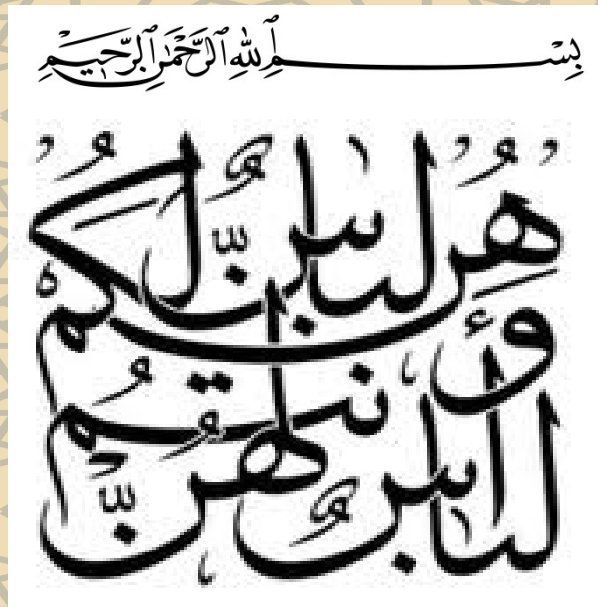 بِسْمِ ٱللَّهِ ٱلرَّحْمَٰنِ ٱلرَّحِيمِ
هُنَّ لِبَاسٌ لَّكُمْ
وَأَنتُمْ
لِبَاسٌ لَّهُنَّ